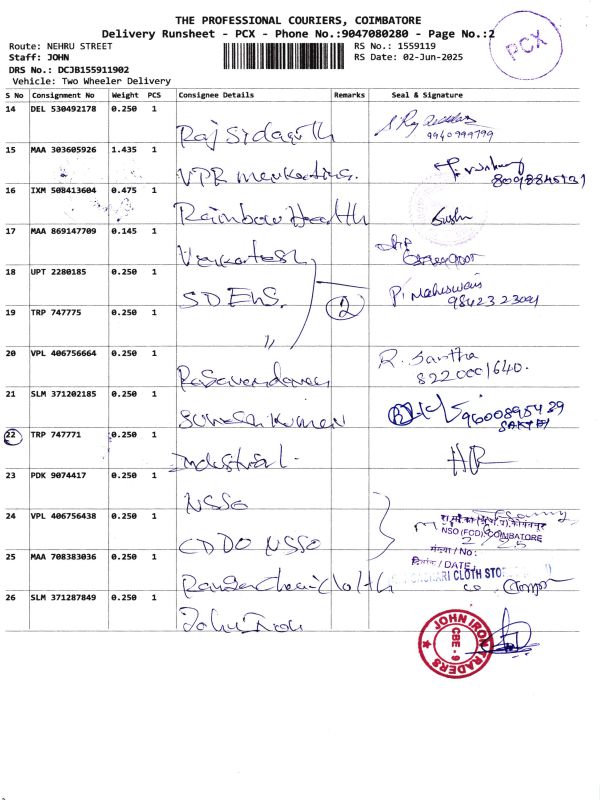 THE PROFESSIONAL COURIERS, COIMBATORE
Delivery Runsheet - PCX - Phone No.:9047080280 - Page No.:2
PCX
Route: NEHRU STREET
RS No.: 1559119
Staff: JOHN
RS Date: 02-Jun-2025
DRS No.: DCJB155911902
Vehicle: Two Wheeler Delivery
S No Consignment No Weight PCS Consignee Details Remarks Seal & Signature
14 DEL 530492178 0.250 1
Raj Sidaarth
9940999799
15 MAA 303605926 1.435 1
VPR Marketing.
16 IXM 508413604 0.475 1
Rainbow Health
17 MAA 869147709 0.145 1
Venkatesh
18 UPT 2280185 0.250 1
SD EhS. 2
P. Maheswari
19 TRP 747775 0.250 1
"
20 VPL 406756664 0.250 1
R. Santha
8220001640.
21 SLM 371202185 0.250 1
9600895439
SAKTHI
22 TRP 747771 0.250 1
Industrial.
23 PDK 9074417 0.250 1
NSSO
24 VPL 406756438 0.250 1
CDDO NSSO
NSO (FOD), COIMBATORE
संख्या / No:
दिनांक / DATE
25 MAA 708383036 0.250 1
CLOTH
26 SLM 371287849 0.250 1
John Iron
JOHN IRON TRADERS
CBE - 9